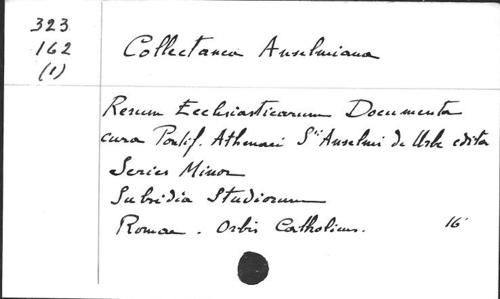 323
162
(1)
Collectanea Anselmiana
Rerum Ecclesiasticarum Documenta
cura Pontif. Athenaei Sti Anselmi de Urbe edita
Series Minor
Subsidia Studiorum
Romae. Orbis Catholicus. 16